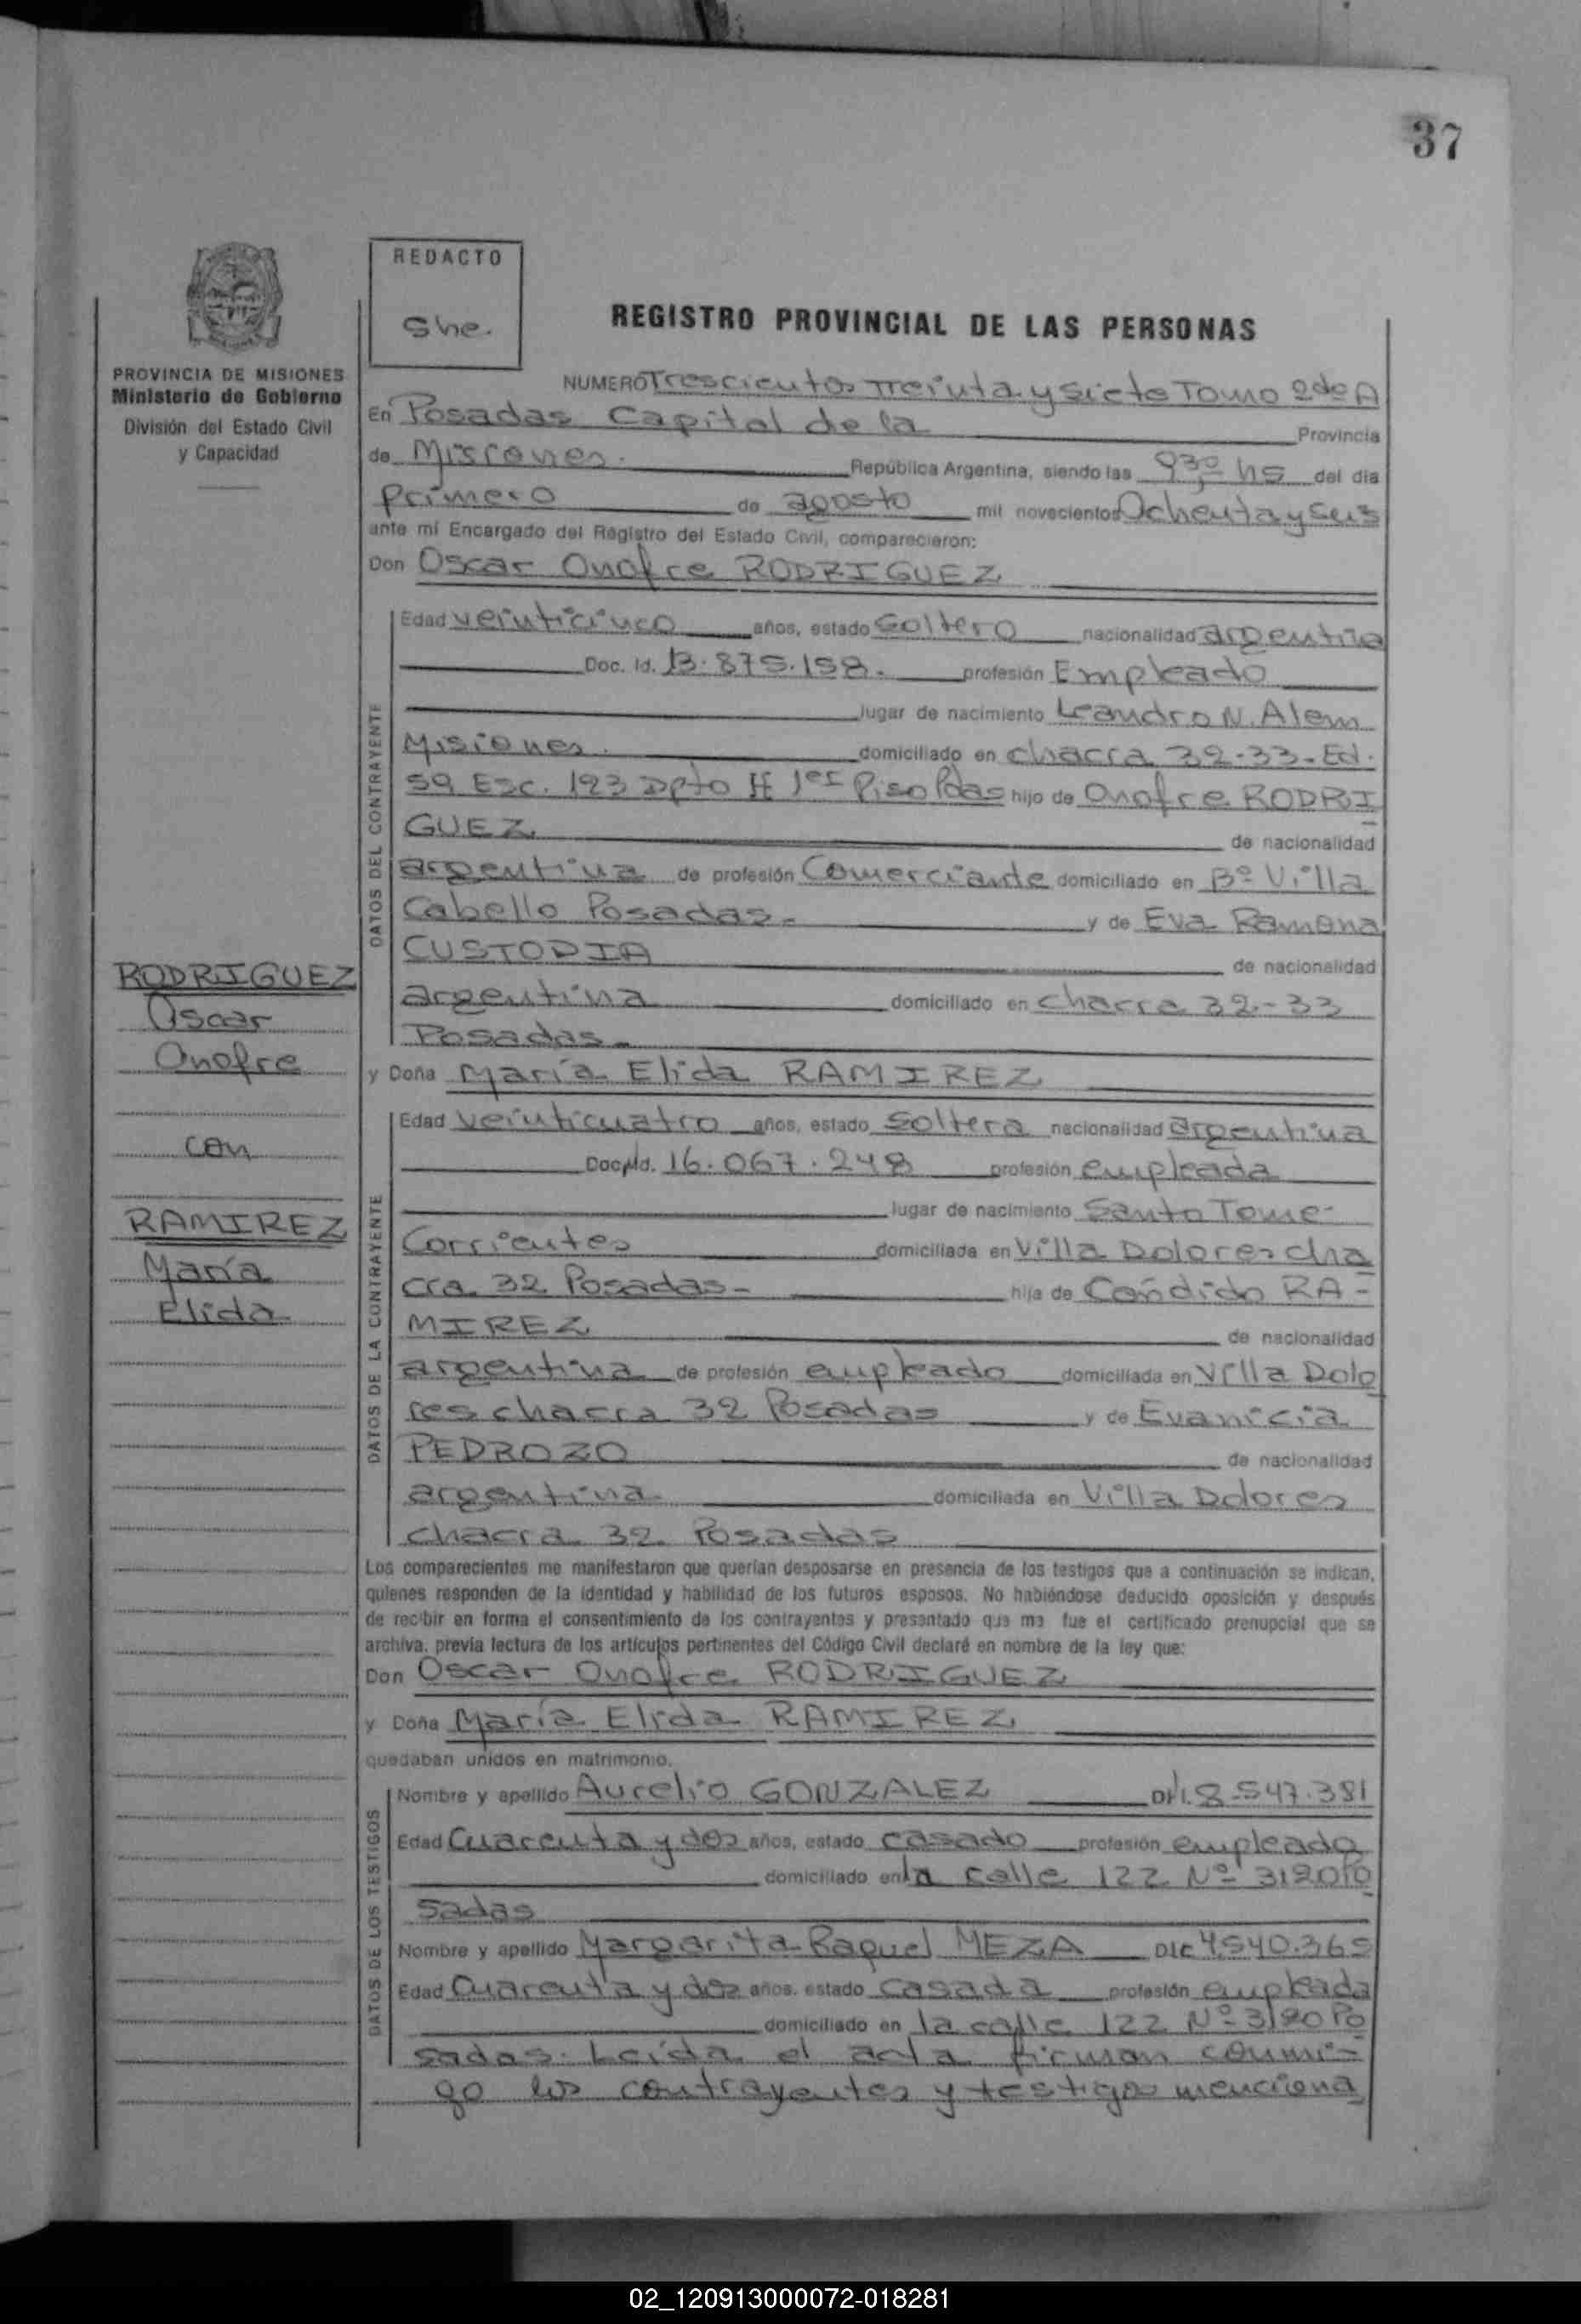 37
REDACTO
She.
REGISTRO PROVINCIAL DE LAS PERSONAS
PROVINCIA DE MISIONES
Ministerio de Gobierno
División del Estado Civil
y Capacidad
NUMERO Trescientos Treinta y siete Tomo 2do A
En Posadas Capital de la Provincia
de Misiones. República Argentina, siendo las 9,30 hs del día
primero de agosto mil novecientos Ochenta y seis
ante mí Encargado del Registro del Estado Civil, comparecieron:
Don Oscar Onofre RODRIGUEZ
DATOS DEL CONTRAYENTE
Edad veinticinco años, estado Soltero nacionalidad argentina
Doc. Id. 13.875.158. profesión Empleado
lugar de nacimiento Leandro N. Alem
Misiones. domiciliado en chacra 32-33-Ed.
59 Esc. 123 Dpto H 1er Piso Pdas hijo de Onofre RODRI
GUEZ de nacionalidad
argentina de profesión Comerciante domiciliado en Bº Villa
Cabello Posadas- y de Eva Ramona
CUSTODIA de nacionalidad
argentina domiciliado en chacra 32-33
Posadas-
RODRIGUEZ
Oscar
Onofre
con
RAMIREZ
María
Elida
y Doña María Elida RAMIREZ
DATOS DE LA CONTRAYENTE
Edad veinticuatro años, estado Soltera nacionalidad argentina
Doc. Id. 16.067.248 profesión empleada
lugar de nacimiento Santo Tome-
Corrientes domiciliada en Villa Dolores cha
cra 32 Posadas- hija de Cándido RA-
MIREZ de nacionalidad
argentina de profesión empleado domiciliada en Villa Dolo
res chacra 32 Posadas y de Evanicia
PEDROZO de nacionalidad
argentina domiciliada en Villa Dolores
chacra 32 Posadas
Los comparecientes me manifestaron que querían desposarse en presencia de los testigos que a continuación se indican,
quienes responden de la identidad y habilidad de los futuros esposos. No habiéndose deducido oposición y después
de recibir en forma el consentimiento de los contrayentes y presentado que me fue el certificado prenupcial que se
archiva, previa lectura de los artículos pertinentes del Código Civil declaré en nombre de la ley que:
Don Oscar Onofre RODRIGUEZ
y Doña María Elida RAMIREZ
quedaban unidos en matrimonio.
DATOS DE LOS TESTIGOS
Nombre y apellido Aurelio GONZALEZ DNI. 8.547.381
Edad Cuarenta y dos años, estado casado profesión empleado
domiciliado en la calle 122 Nº 3120 Po
sadas
Nombre y apellido Margarita Raquel MEZA DLC 4.540.365
Edad Cuarenta y dos años, estado casada profesión empleada
domiciliado en la calle 122 Nº 3120 Po
sadas. Leída el acta firman conmi-
go los contrayentes y testigos menciona
02_120913000072-018281